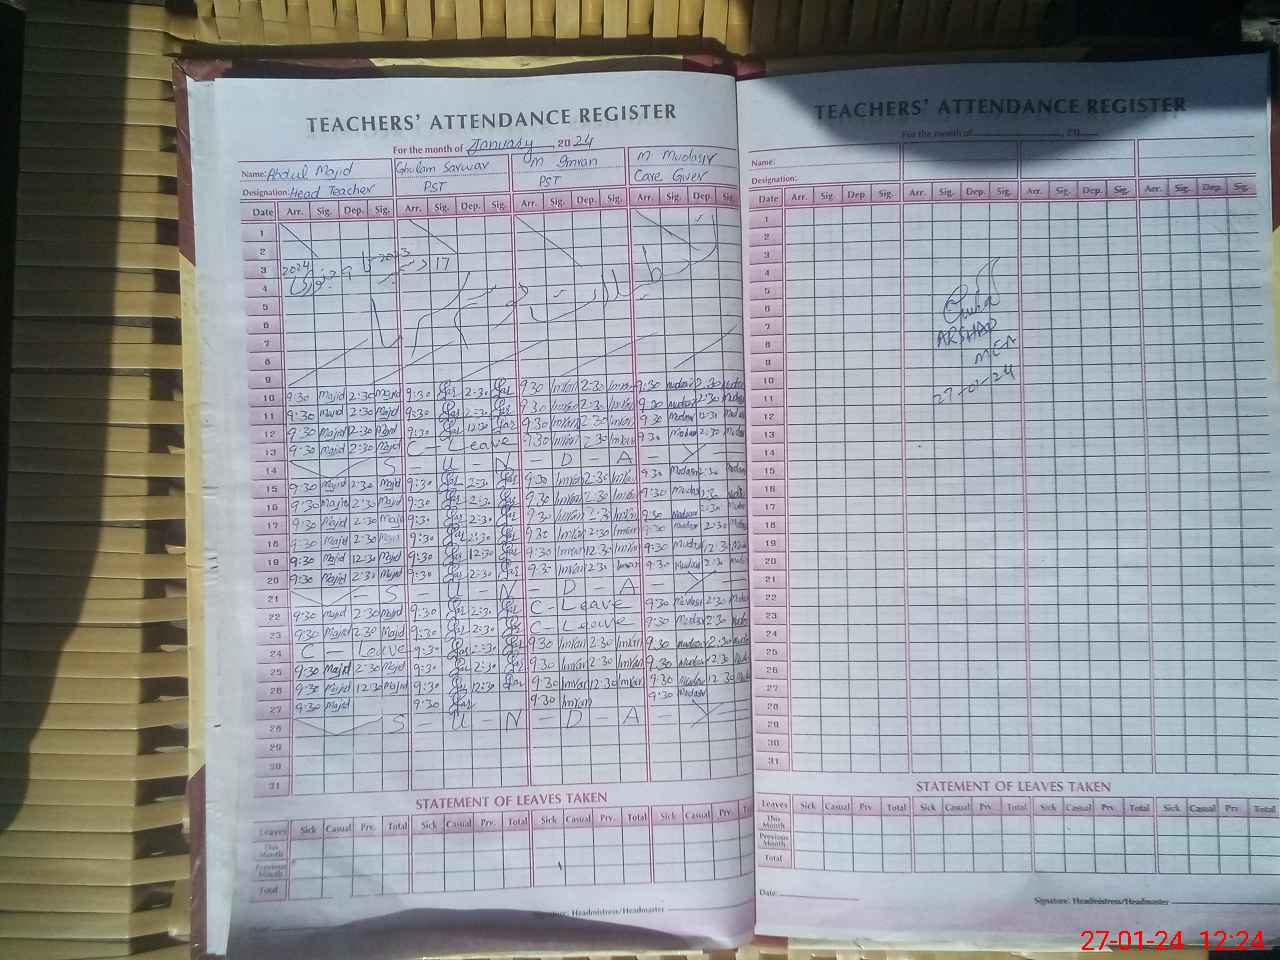 TEACHERS' ATTENDANCE REGISTER
For the month of January, 2024
Name: Abdul Majid Ghulam Sarwar M Imran M Mudasir
Designation: Head Teacher PST PST Care Giver
Date Arr. Sig. Dep. Sig. Arr. Sig. Dep. Sig. Arr. Sig. Dep. Sig. Arr. Sig. Dep. Sig.
1
2
3
4
5
6
7
8
9
10 9:30 Majid 2:30 Majid 9:30 2:30 9:30 Imran 2:30 Imran 9:30 Mudasir 2:30
11 9:30 Majid 2:30 Majid 9:30 2:30 9:30 Imran 2:30 Imran 9:30 Mudasir 2:30
12 9:30 Majid 2:30 Majid 9:30 12:30 9:30 Imran 2:30 Imran 9:30 Mudasir 12:30
13 9:30 Majid 2:30 Majid C - Leave 9:30 Imran 2:30 Imran 9:30 Mudasir 2:30
14 S - U - N - D - A - Y
15 9:30 Majid 2:30 Majid 9:30 2:30 9:30 Imran 2:30 Imran 9:30 Mudasir 2:30
16 9:30 Majid 2:30 Majid 9:30 2:30 9:30 Imran 2:30 Imran 9:30 Mudasir 2:30
17 9:30 Majid 2:30 Majid 9:30 2:30 9:30 Imran 2:30 Imran 9:30 Mudasir 2:30
18 9:30 Majid 2:30 Majid 9:30 2:30 9:30 Imran 2:30 Imran 9:30 Mudasir 2:30
19 9:30 Majid 12:30 Majid 9:30 12:30 9:30 Imran 12:30 Imran 9:30 Mudasir 12:30
20 9:30 Majid 2:30 Majid 9:30 2:30 9:30 Imran 2:30 Imran 9:30 Mudasir 2:30
21 S - U - N - D - A - Y
22 9:30 Majid 2:30 Majid 9:30 2:30 C - Leave 9:30 Mudasir 2:30
23 9:30 Majid 2:30 Majid 9:30 2:30 C - Leave 9:30 Mudasir 2:30
24 C - Leave 9:30 2:30 9:30 Imran 2:30 Imran 9:30 Mudasir 2:30
25 9:30 Majid 2:30 Majid 9:30 2:30 9:30 Imran 2:30 Imran 9:30 Mudasir 2:30
26 9:30 Majid 12:30 Majid 9:30 12:30 9:30 Imran 12:30 Imran 9:30 Mudasir 12:30
27 9:30 Majid 9:30 9:30 Imran 9:30 Mudasir
28 S - U - N - D - A - Y
29
30
31
STATEMENT OF LEAVES TAKEN
Leaves Sick Casual Prv. Total Sick Casual Prv. Total Sick Casual Prv. Total Sick Casual Prv. Total
This Month
Previous Month
Total
Signature: Headmistress/Headmaster
TEACHERS' ATTENDANCE REGISTER
For the month of , 20
Name:
Designation:
Date Arr. Sig. Dep. Sig. Arr. Sig. Dep. Sig. Arr. Sig. Dep. Sig. Arr. Sig. Dep. Sig.
1
2
3
4
5
6
7
ARSHAD
8
MEA
9
10
27-01-24
11
12
13
14
15
16
17
18
19
20
21
22
23
24
25
26
27
28
29
30
31
STATEMENT OF LEAVES TAKEN
Leaves Sick Casual Prv. Total Sick Casual Prv. Total Sick Casual Prv. Total Sick Casual Prv. Total
This Month
Previous Month
Total
Date:
Signature: Headmistress/Headmaster
27-01-24 12:24